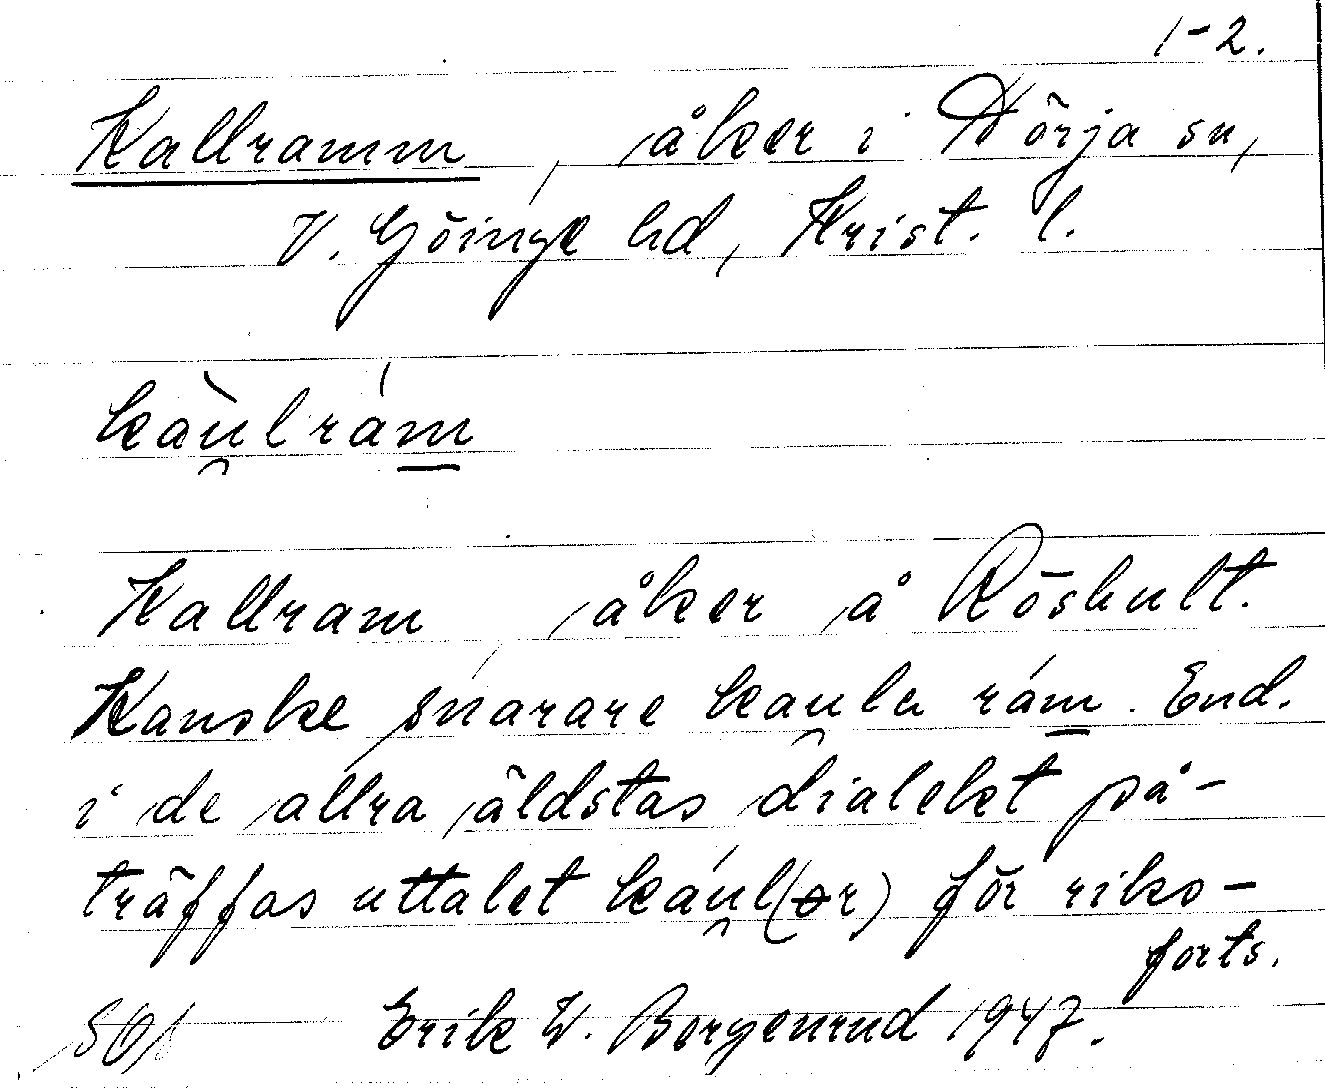 1-2.
Kallramm, åker i Nörja sn,
V. Göinge hd, Krist. l.
kàu̯lrám̲
Kallram, åker å Röshult.
Kanske snarare kau̯la rám̲. End.
i de allra äldstas dialekt på-
träffas uttalet káu̯l(ər) för riks-
forts.
Erik W. Borgenrud 1947.